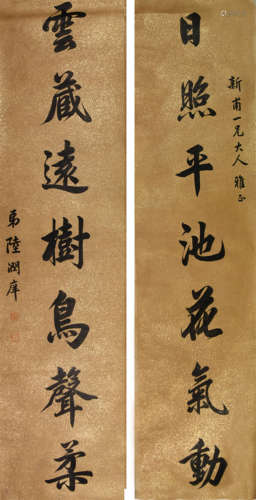 新甫一兄大人雅正
日照平池花氣動
雲藏遠樹鳥聲柔
弟陸潤庠